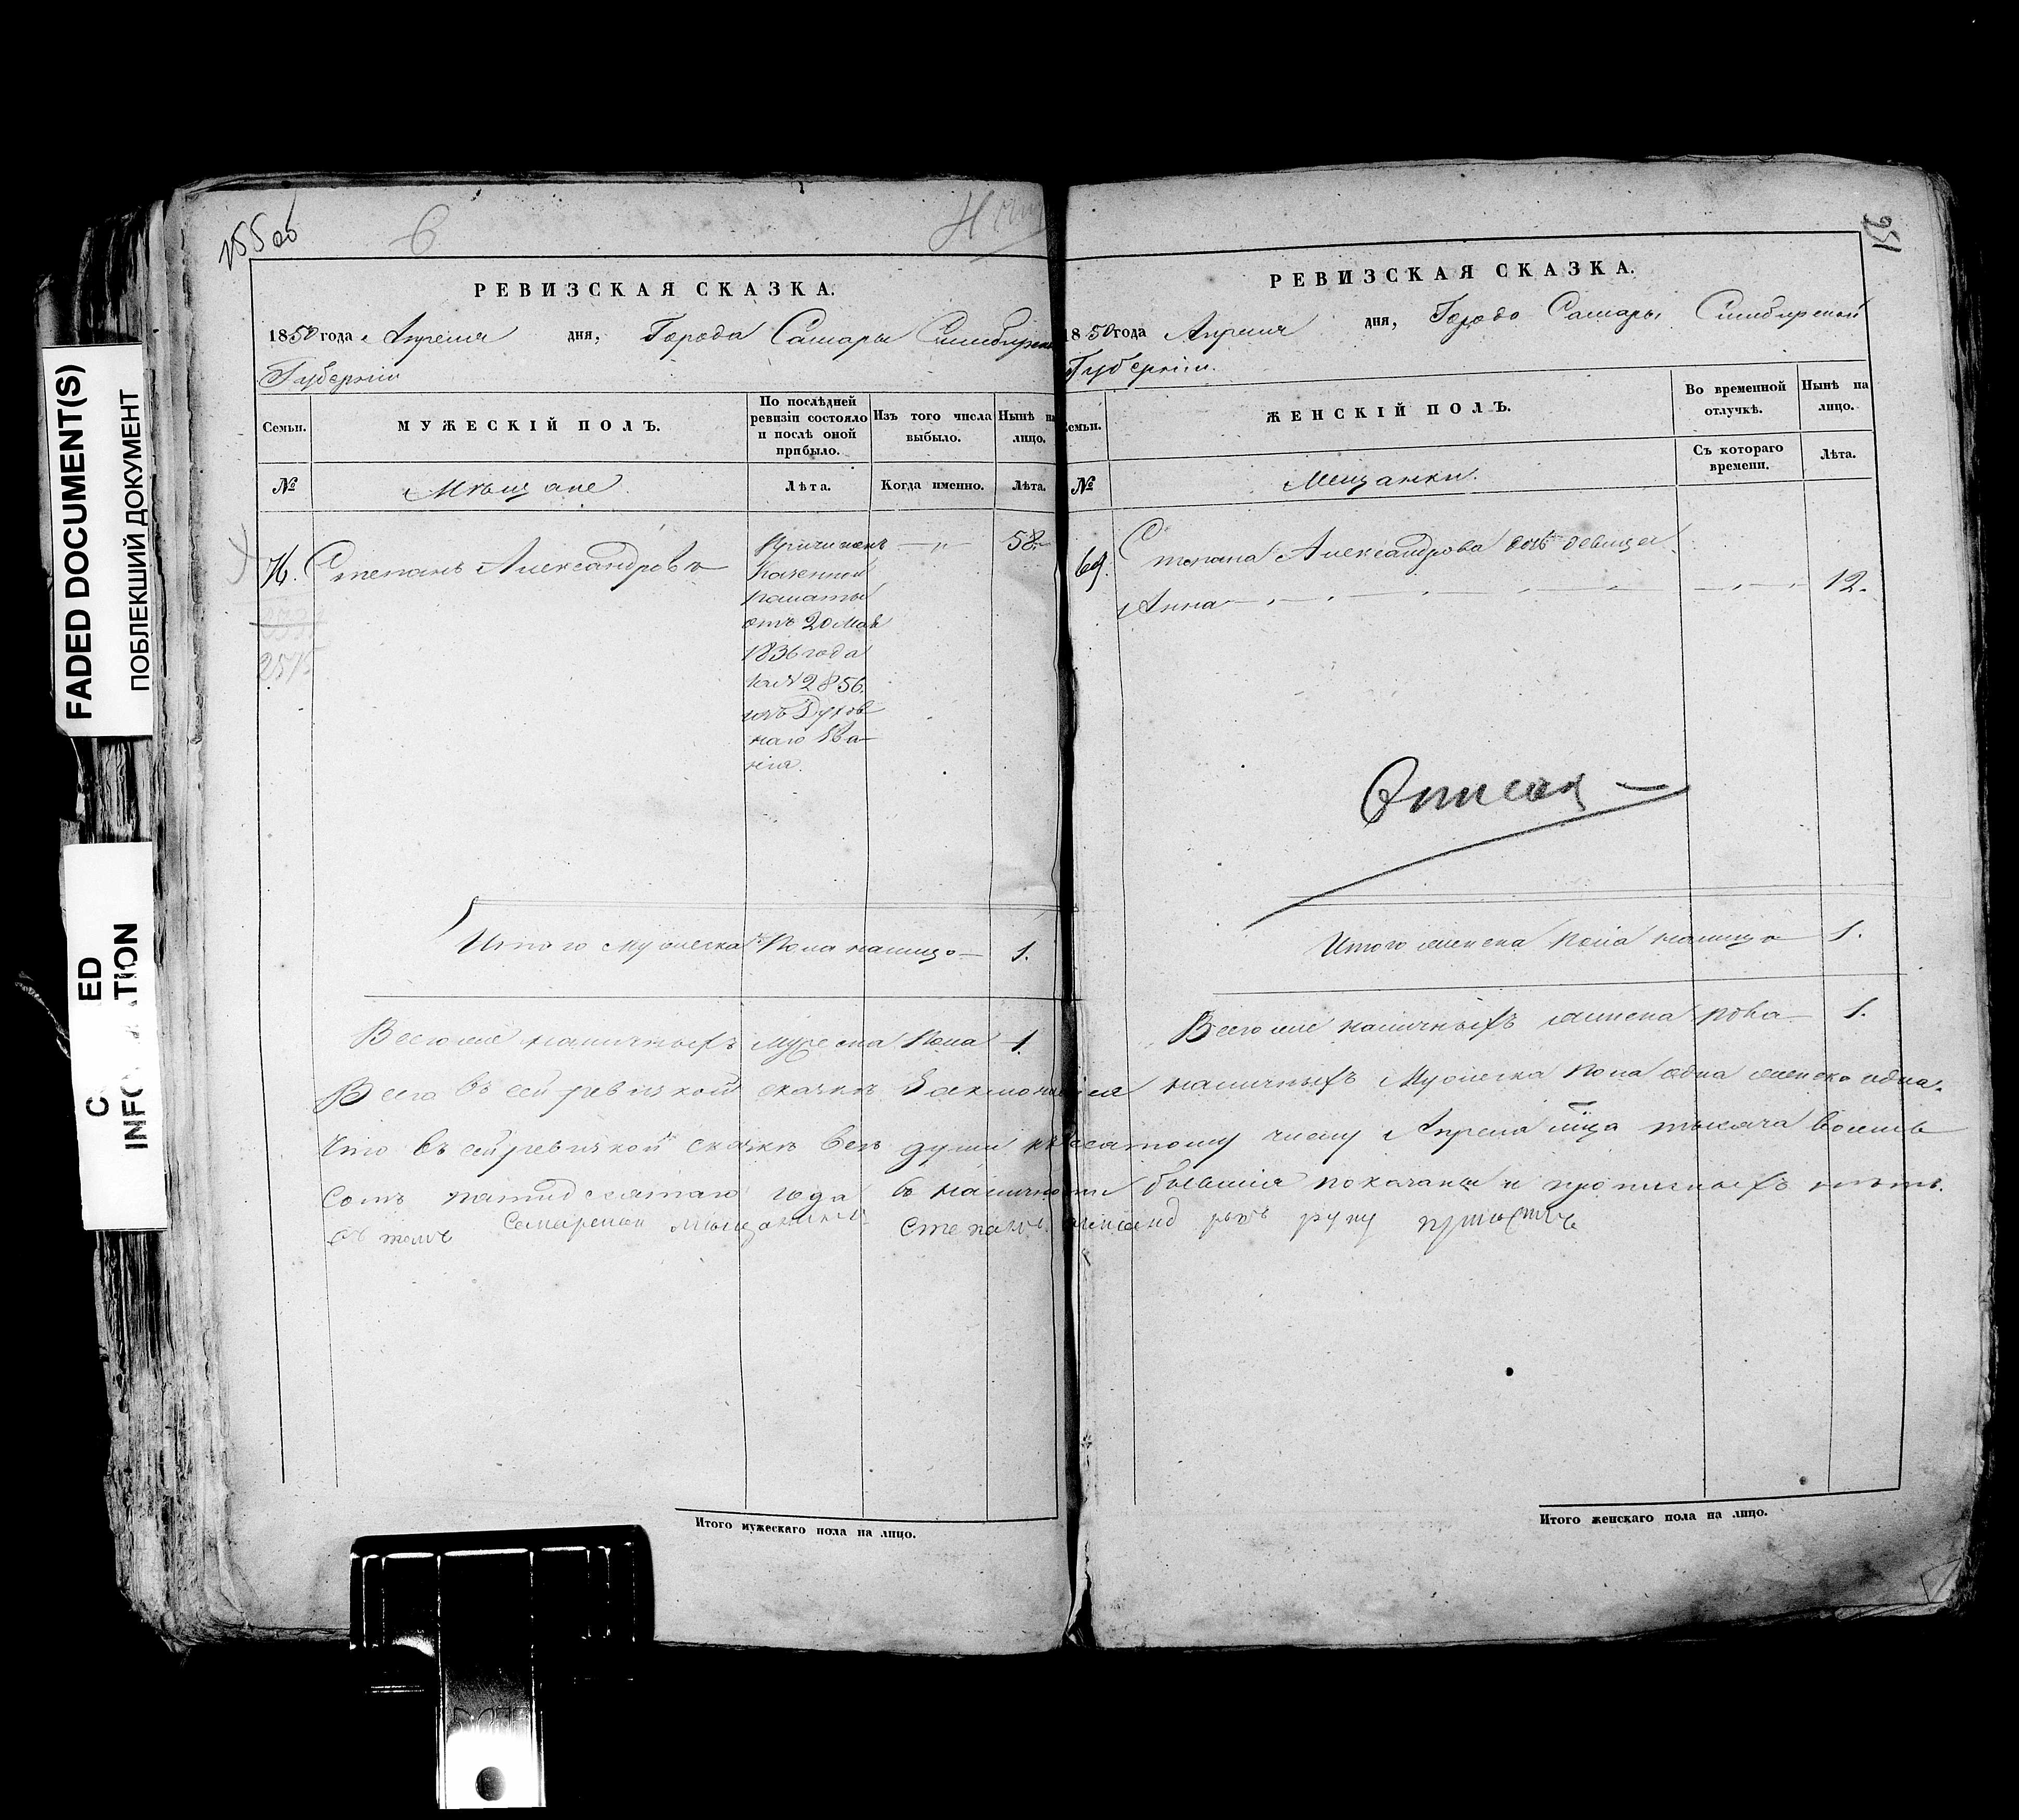 FADED DOCUMENT(S)
ПОБЛЕКШИЙ ДОКУМЕНТ
155 об
6
РЕВИЗСКАЯ СКАЗКА.
1850 года Апреля дня, Города Самары Симбирской
Губерніи
Семьи.
МУЖЕСКІЙ ПОЛЪ.
По послѣдней ревизіи состояло и послѣ оной прибыло.
Изъ того числа выбыло.
Нынѣ на лицо.
№
Мѣщане
Лѣта.
Когда именно.
Лѣта.
Степанъ Александровъ
Причисленъ
Казенной
палаты
отъ 20 Мая
1836 года
за № 2856
изъ Духов
наго Зва-
нія.
58
2575
Итого мужеска Пола налицо 1.
Всего же наличныхъ мужеска Пола 1.
РЕВИЗСКАЯ СКАЗКА.
1850 года Апреля дня, Города Самары Симбирской
Губерніи.
Семьи.
ЖЕНСКІЙ ПОЛЪ.
Во временной отлучкѣ.
Нынѣ на лицо.
№
Мещанки.
Съ котораго времени.
Лѣта.
Степана Александрова дочь девица
Анна 12.
Итого женска пола налицо 1.
Всего же наличныхъ женска пола 1.
Всего въ сей ревизкой сказкѣ Заключающихся наличныхъ Мужеска пола одна женска одна.
Что въ сей ревизкой сказкѣ все души къ десятому числу Апреля мца тысяча восемь
сотъ пятидесятаго года въ наличности бывшія показаны и прописныхъ нѣтъ.
въ томъ Самарской мѣщанинъ Степанъ Александровъ руку приложилъ
Итого мужескаго пола на лицо.
Итого женскаго пола на лицо.